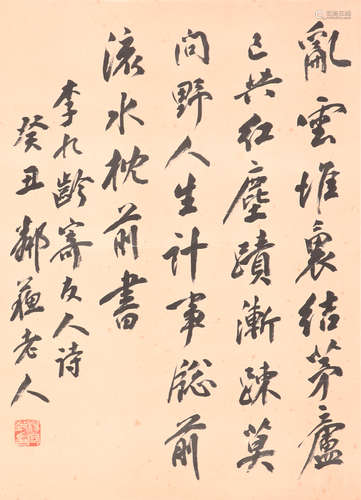 亂雲堆裏結茅廬
已共紅塵蹟漸疎莫
問野人生計事窗前
流水枕前書
李九齡寄友人詩
癸丑鄰蘇老人